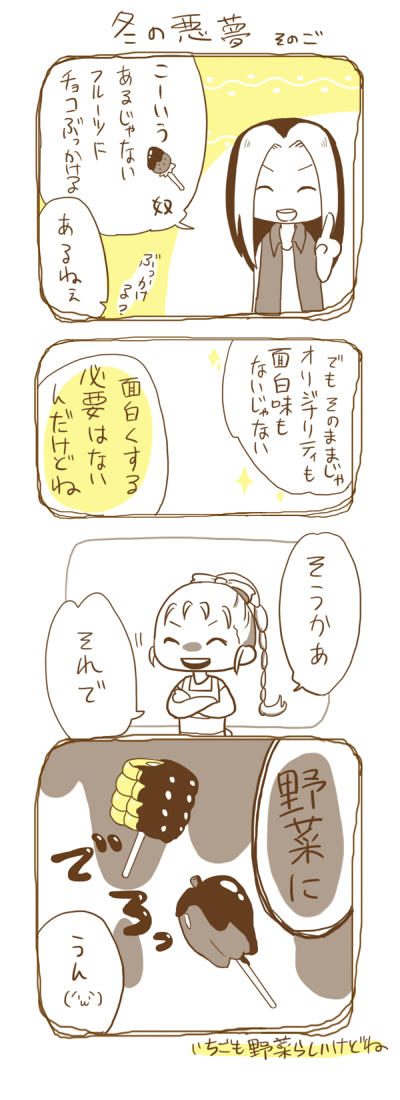 冬の悪夢 その五
こーいう
あるじゃない
フルーツに
チョコぶっかけるよ
奴
あるねぇ
ぶっかけ
る?
でも そのままじゃ
オリジナリティも
面白味も
ないじゃない
面白くする
必要はない
んだけどね
そうかぁ
それで
野菜に
でろっ
うん
(´'ω'`)
いちごも野菜らしいけどね